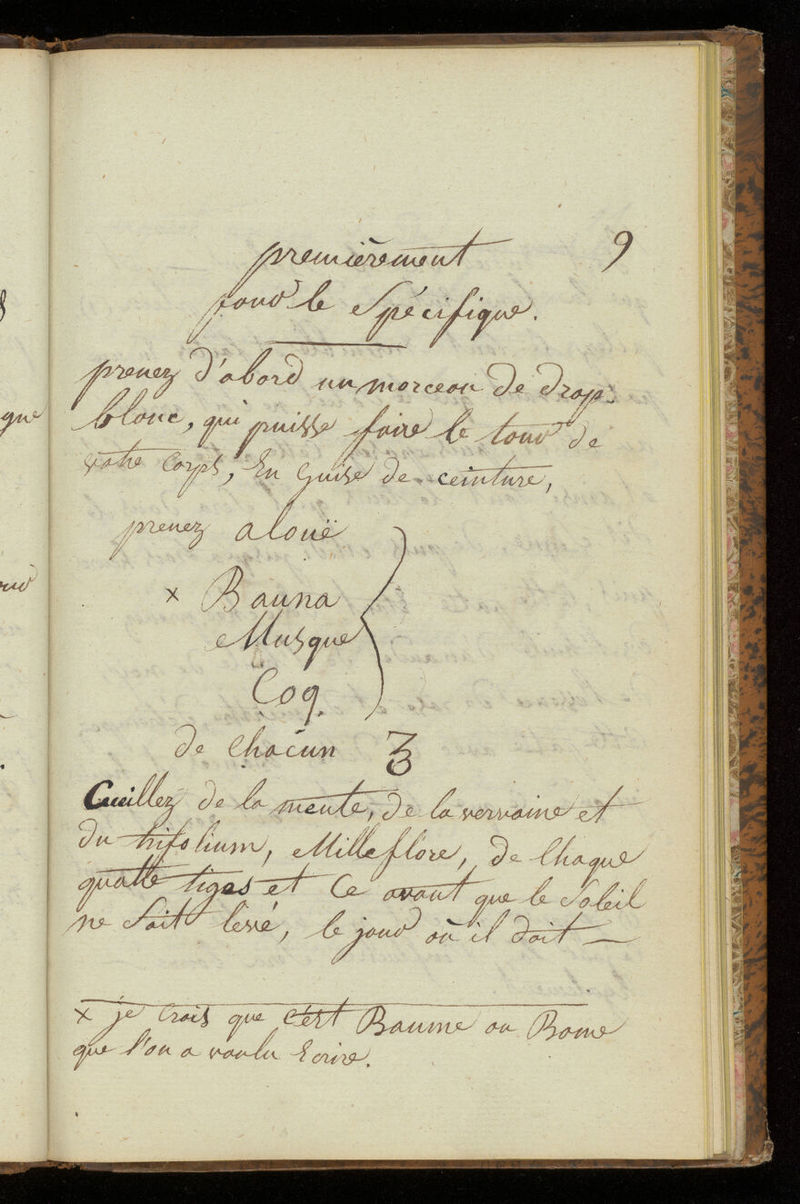 9
premièrement
pour le Spécifique.
prenez d'abord un morceau de drap
blanc, qui puisse faire le tour de
votre Corps, En guise de ceinture,
prenez alouë
x Bauna
Musque
Coq.
de Chacun 3
Cueillez de la mente, de la vervaine et
du trifolium, Milleflore, de Chaque
quatre tiges et Ce avant que le Soleil
ne Soit levé, le jour où il doit —
x je Crois que c'est Baume ou Bome
que l'on a voulu Ecrire.
gne